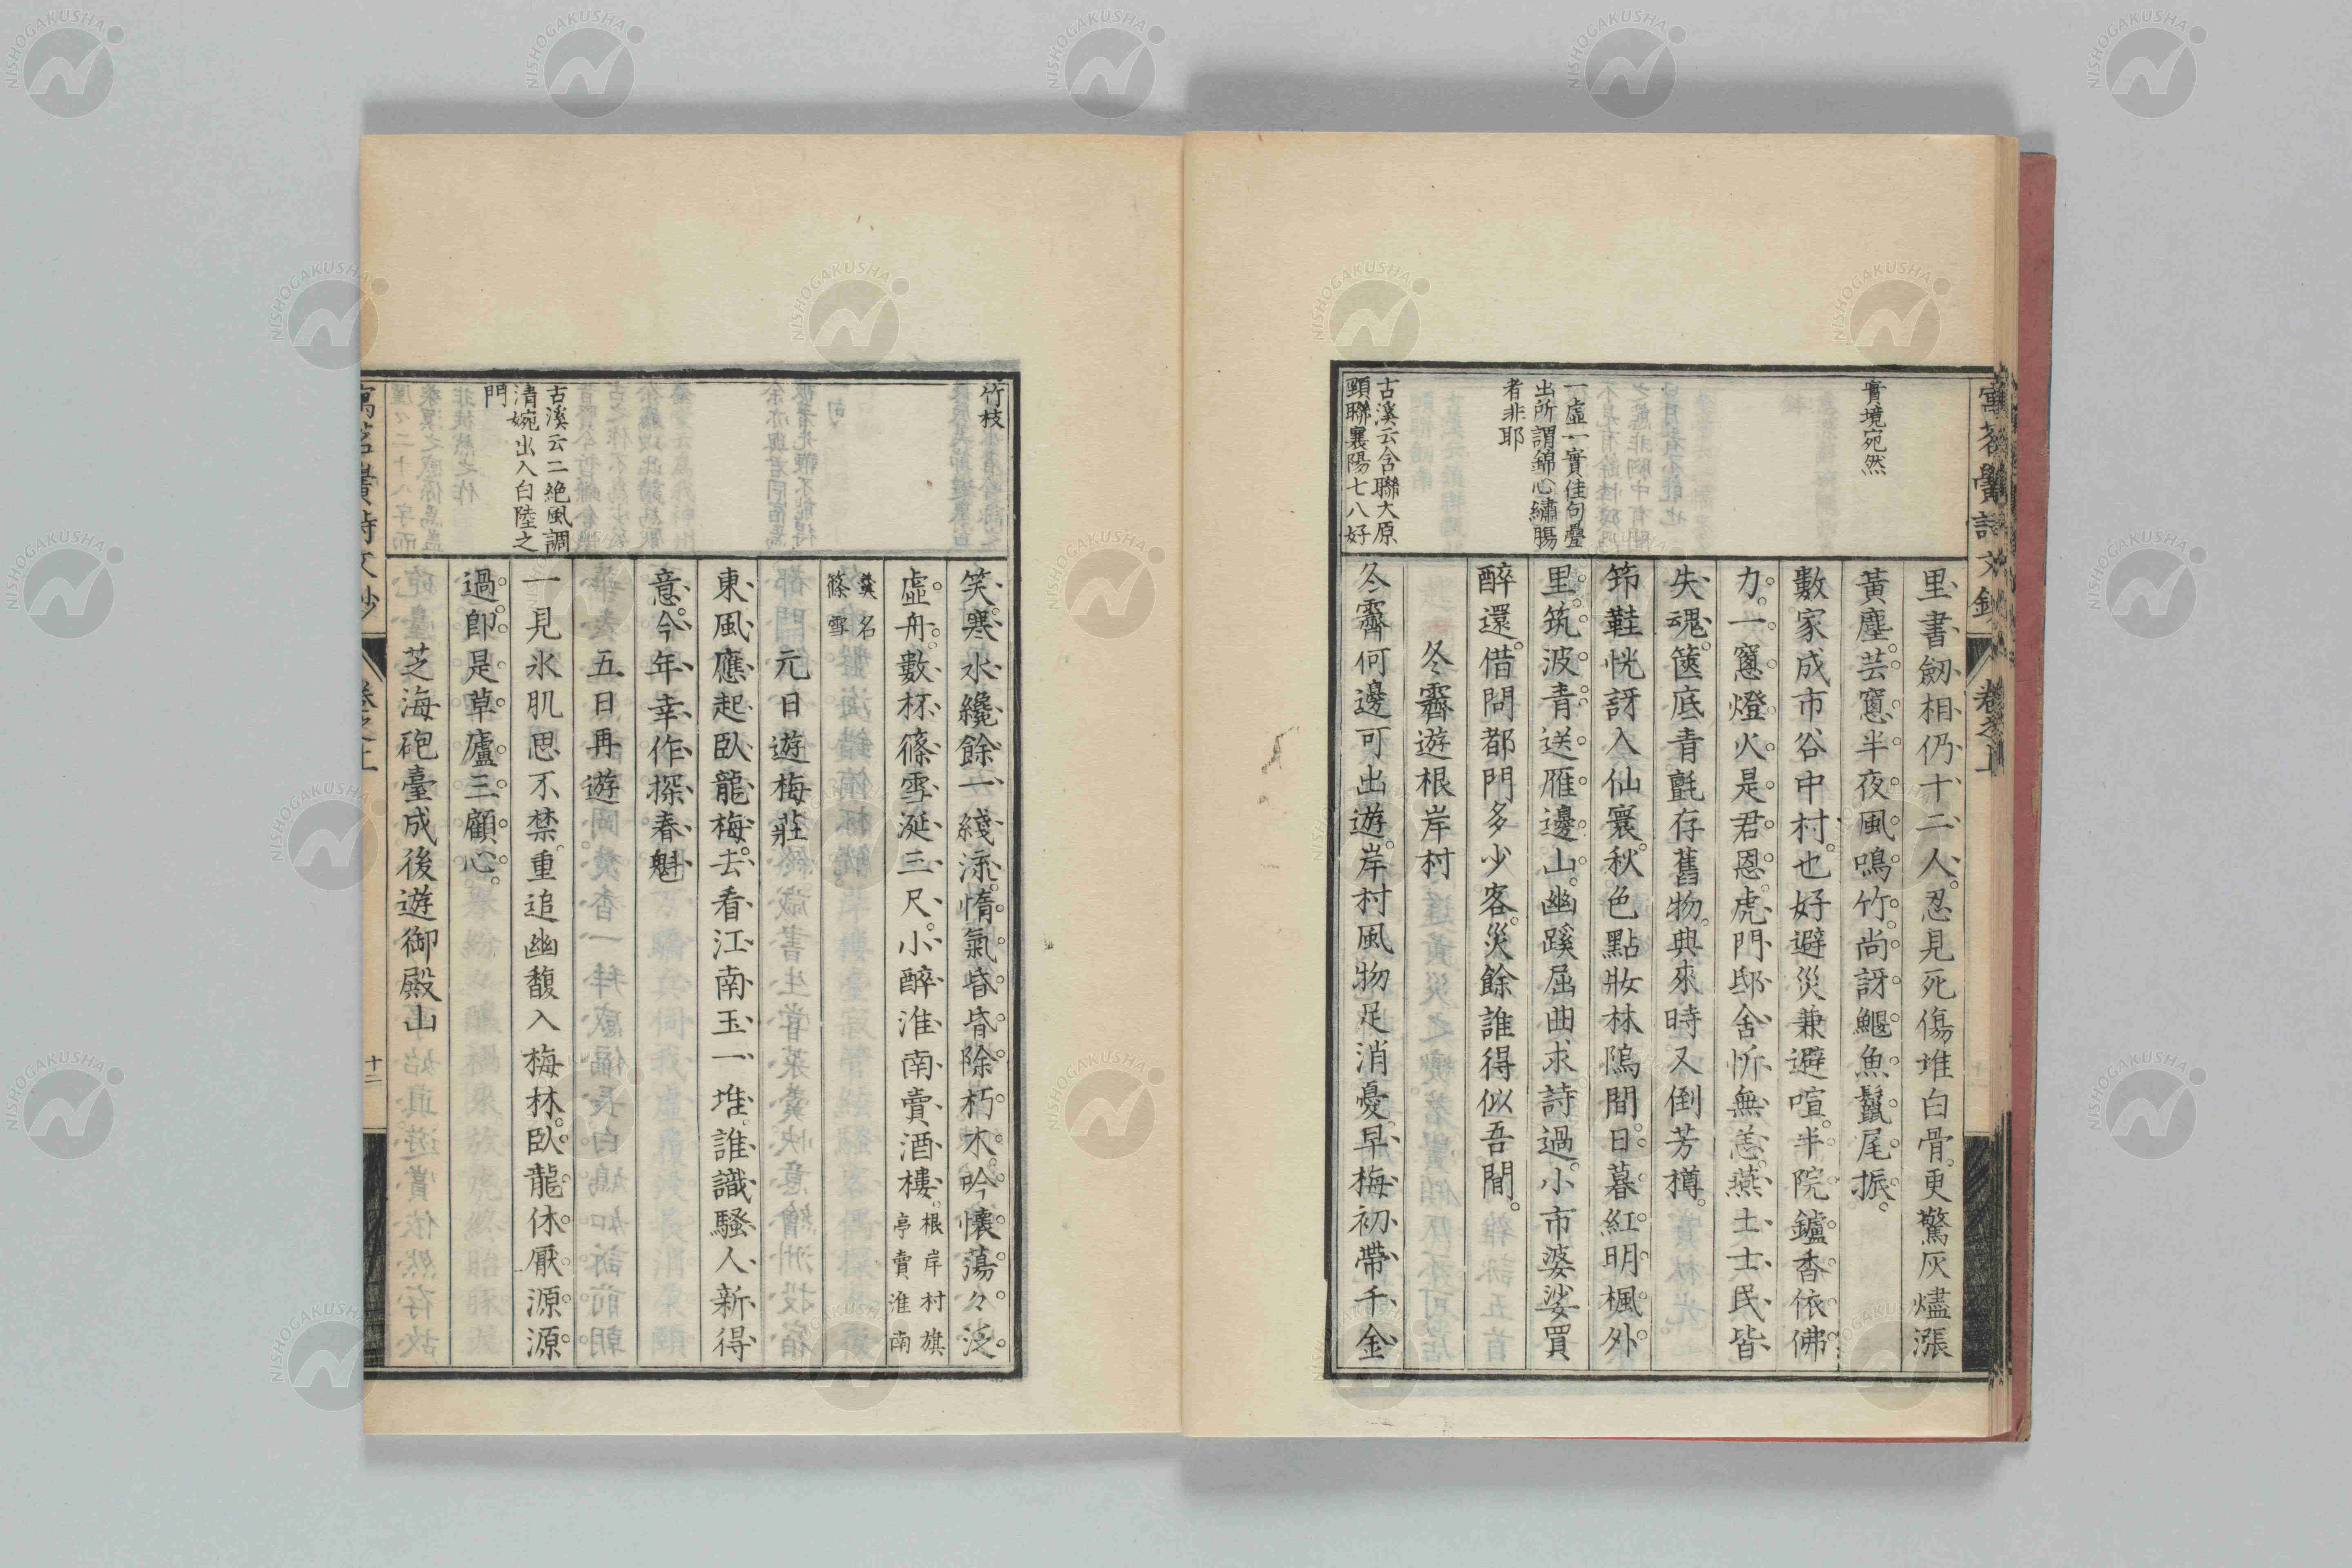 實境宛然
一虛一實佳句疊
出所謂錦心繡腸
者非耶
古溪云含聯大原
頸聯襄陽七八好
里書劒相仍十二人忍見死傷堆白骨更驚灰燼漲
黃塵芸窻半夜風鳴竹尚訝鰋魚鬣尾振
數家成市谷中村也好避災兼避喧半院鑪香依佛
力一窻燈火是君恩虎門邸舍忻無恙燕土士民皆
失魂篋底青氈存舊物典來時又倒芳樽
笻鞋恍訝入仙寰秋色點妝林隖間日暮紅明楓外
里筑波青送雁邊山幽蹊屈曲求詩過小市婆娑買
醉還借問都門多少客災餘誰得似吾閒
冬霽遊根岸村
冬霽何邊可出遊岸村風物足消憂早梅初帶千金
卷之上
竹枝
古溪云二絕風調
清婉出入白陸之
門
笑寒水纔餘一綫流惰氣昏昏除朽木吟懷蕩々泛
虛舟數杯篠雪涎三尺小醉淮南賣酒樓根岸村旗
亭賣淮南
羹名
篠雪
元日遊梅莊
東風應起臥龍梅去看江南玉一堆誰識騷人新得
意今年幸作探春魁
五日再遊
一見氷肌思不禁重追幽馥入梅林臥龍休厭源源
過卽是草廬三顧心
芝海砲臺成後遊御殿山
十二
NISHOGAKUSHA